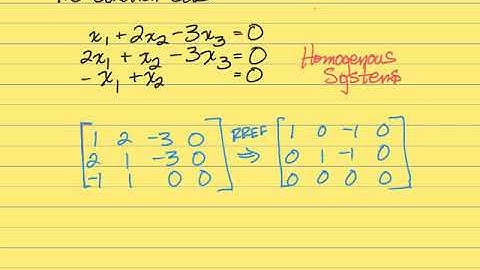 x₁ + 2x₂ - 3x₃ = 0
2x₁ + x₂ - 3x₃ = 0
- x₁ + x₂ = 0
Homogenous
Systems
[1 2 -3 0] RREF [1 0 -1 0]
[2 1 -3 0] ⇒ [0 1 -1 0]
[-1 1 0 0] [0 0 0 0]